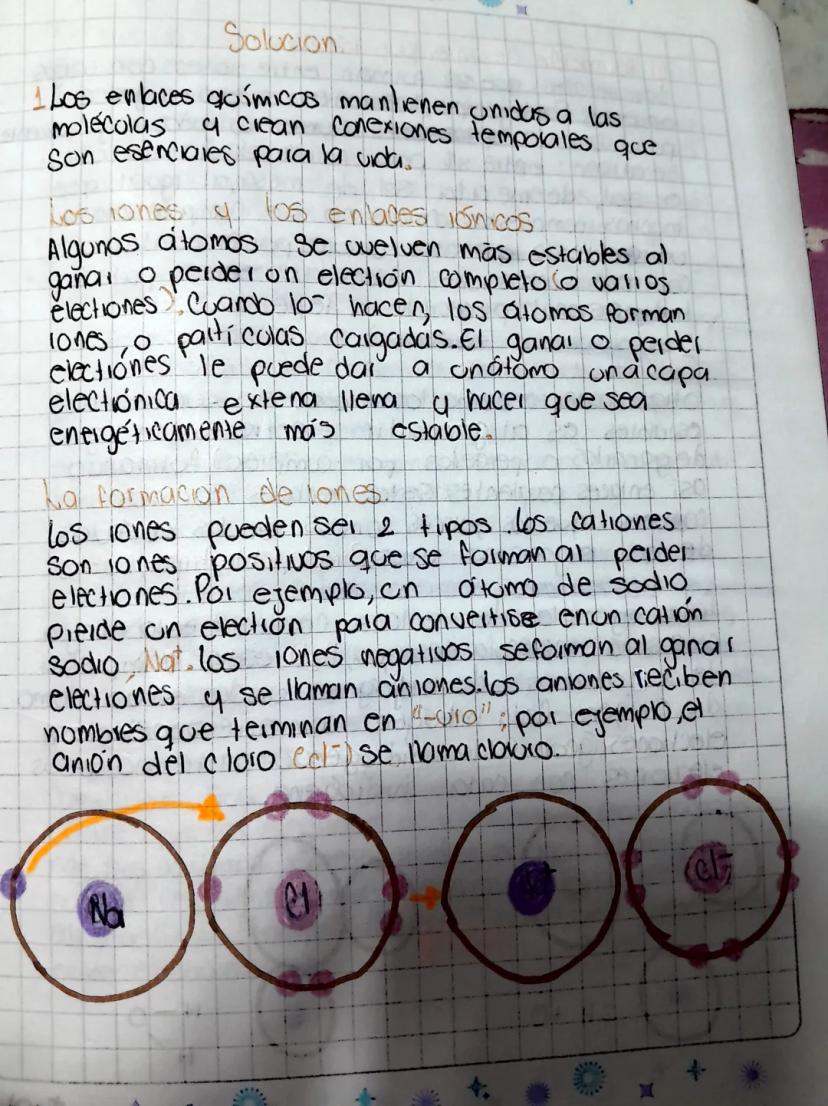 Solucion
1 Los enlaces químicos mantienen unidas a las
moléculas y crean conexiones temporales que
son esenciales para la vida.
Los iones y los enlaces iónicos
Algunos átomos se vuelven más estables al
ganar o perder un electrón completo (o varios
electrones). Cuando lo hacen, los átomos forman
iones, o partículas cargadas. El ganar o perder
electrónes le puede dar a un átomo una capa
electrónica extena llena y hacer que sea
energéticamente más estable.
La formacion de iones.
Los iones pueden ser 2 tipos. los cationes
son iones positivos que se forman al perder
electrones. Por ejemplo, un átomo de sodio
pierde un electrón para convertise en un catión
sodio, Na+. los iones negativos se forman al ganar
electrones y se llaman aniones. los aniones reciben
nombres que terminan en "-uro"; por ejemplo, el
anión del cloro (cl-) se llama cloruro.
Na Cl Cl-